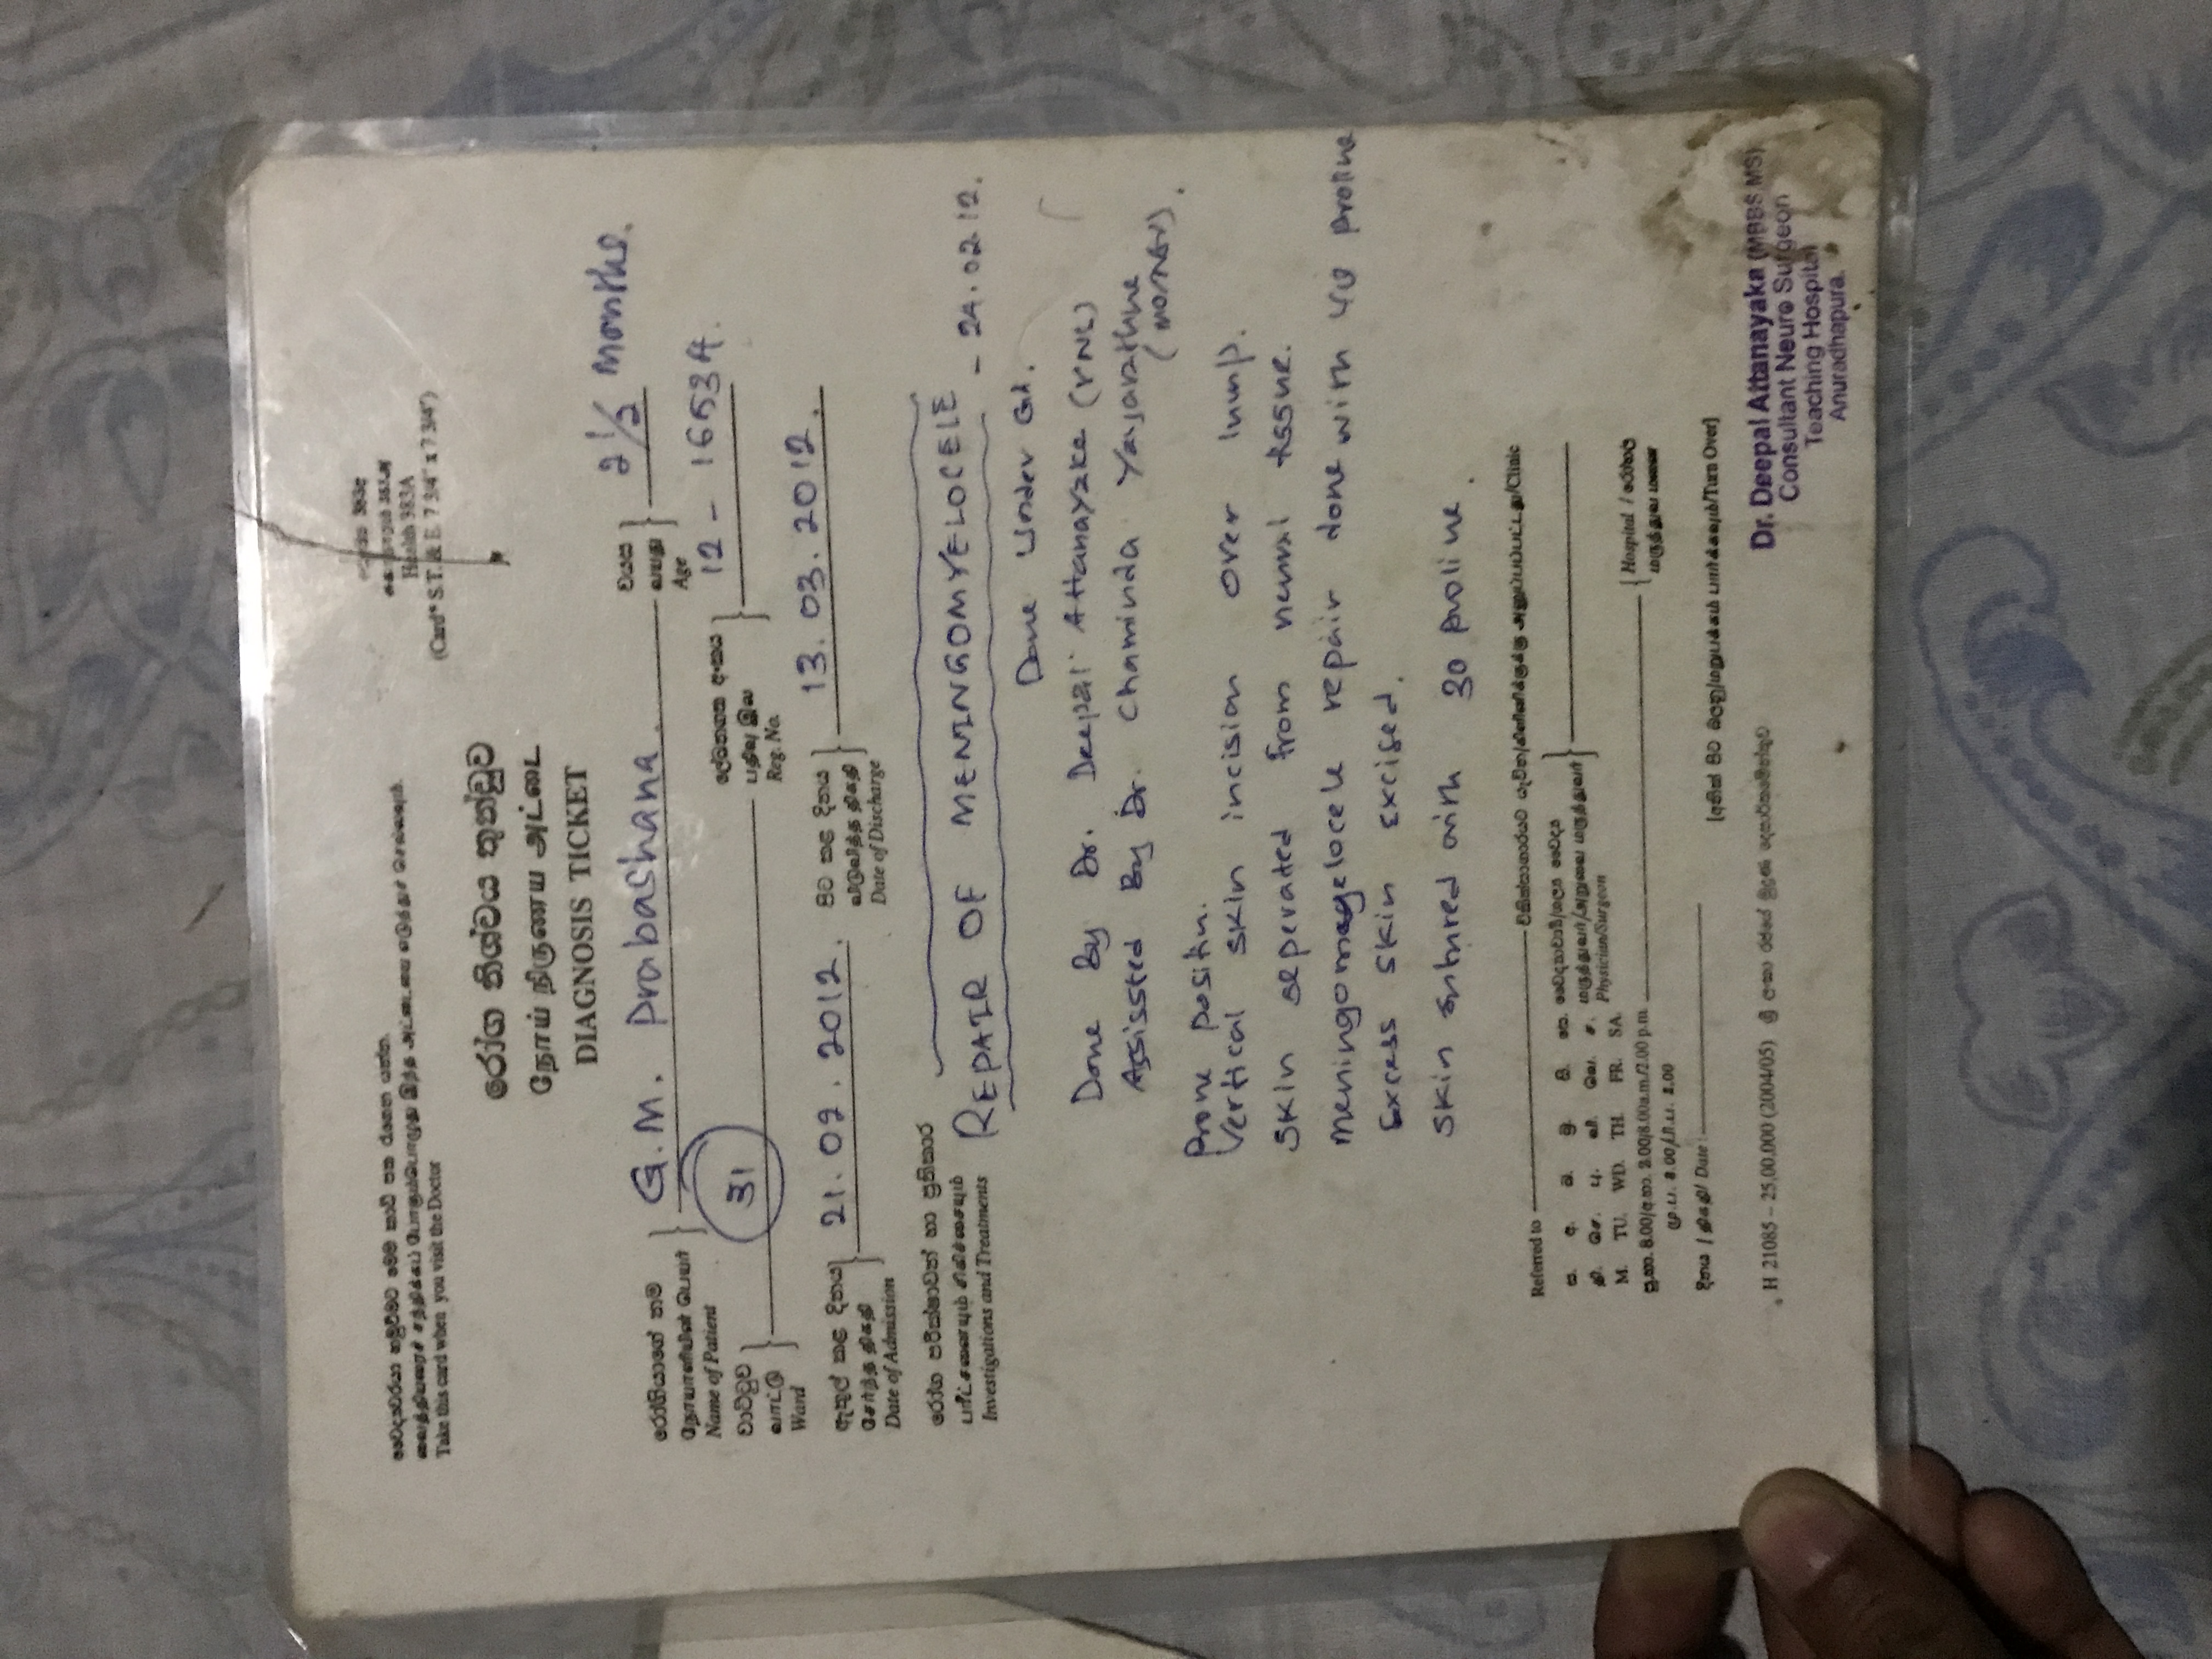 වෛද්‍යවරයා හමුවීමට මෙම කාඩ් පත රැගෙන යන්න.
வைத்தியரைச் சந்திக்கப் போகும்பொழுது இந்த அட்டையை எடுத்துச் செல்லவும்.
Take this card when you visit the Doctor
Health 383A
(Card* S.T. & E. 7 3/4" x 7 3/4")
රෝග නිශ්චය තුන්ඩුව
நோய் நிருணய அட்டை
DIAGNOSIS TICKET
රෝගියාගේ නම
நோயாளியின் பெயர்
Name of Patient
G.M. Prabashana
වයස
வயது
Age
2 1/2 Months.
වාට්ටුව
வாட்டு
Ward
31
ලේඛනගත අංකය
பதிவு இல
Reg. No.
12 -
ඇතුල් කළ දිනය
சேர்ந்த திகதி
Date of Admission
21. 02 . 2012.
පිට කළ දිනය
விடுவித்த திகதி
Date of Discharge
13. 03. 2012.
රෝග පරීක්ෂාවන් හා ප්‍රතිකාර
பரீட்சனையும் சிகிச்சையும்
Investigations and Treatments
REPAIR OF MENINGOMYELOCELE - 24.02.12.
Done Under GA.
Done By Dr. Deepal Attanayake
Assissted By Dr. Chaminda
Prone
Vertical skin incision over lump.
Skin seperated from neural tissue.
repair done with 40 proline
Excess skin excised.
Skin sutured with 30 proline.
Referred to
සිකිත්සාගාරයට යැවීත/கிளினிக்குக்கு அனுப்பப்பட்டது/Clinic
ස. අ. බ. බ්‍ර. සි. සෙ. වෛද්‍යාචාර්ය/ශල්‍ය වෛද්‍ය
தி. செ. பு. வி. வெ. ச. மருத்துவர்/அறுவை மருத்துவர்
M. TU. WD. TH. FR. SA. Physician/Surgeon
පූ.භා. 8.00/අ.භා. 2.00/8.00a.m./2.00 p.m.
Hospital / රෝහල
மு.ப. 8.00/பி.ப. 2.00
மருத்துவ மனை
දිනය / திகதி/ Date :
[අනික් පිට බලනු/மறுபக்கம் பார்க்கவும்/Turn Over]
H 21085 – 25,00,000 (2004/05) ශ්‍රී ලංකා රජයේ මුද්‍රණ දෙපාර්තමේන්තුව
Dr. Deepal Attanayaka (MBBS,MS)
Consultant Neuro Surgeon
Teaching Hospital
Anuradhapura.